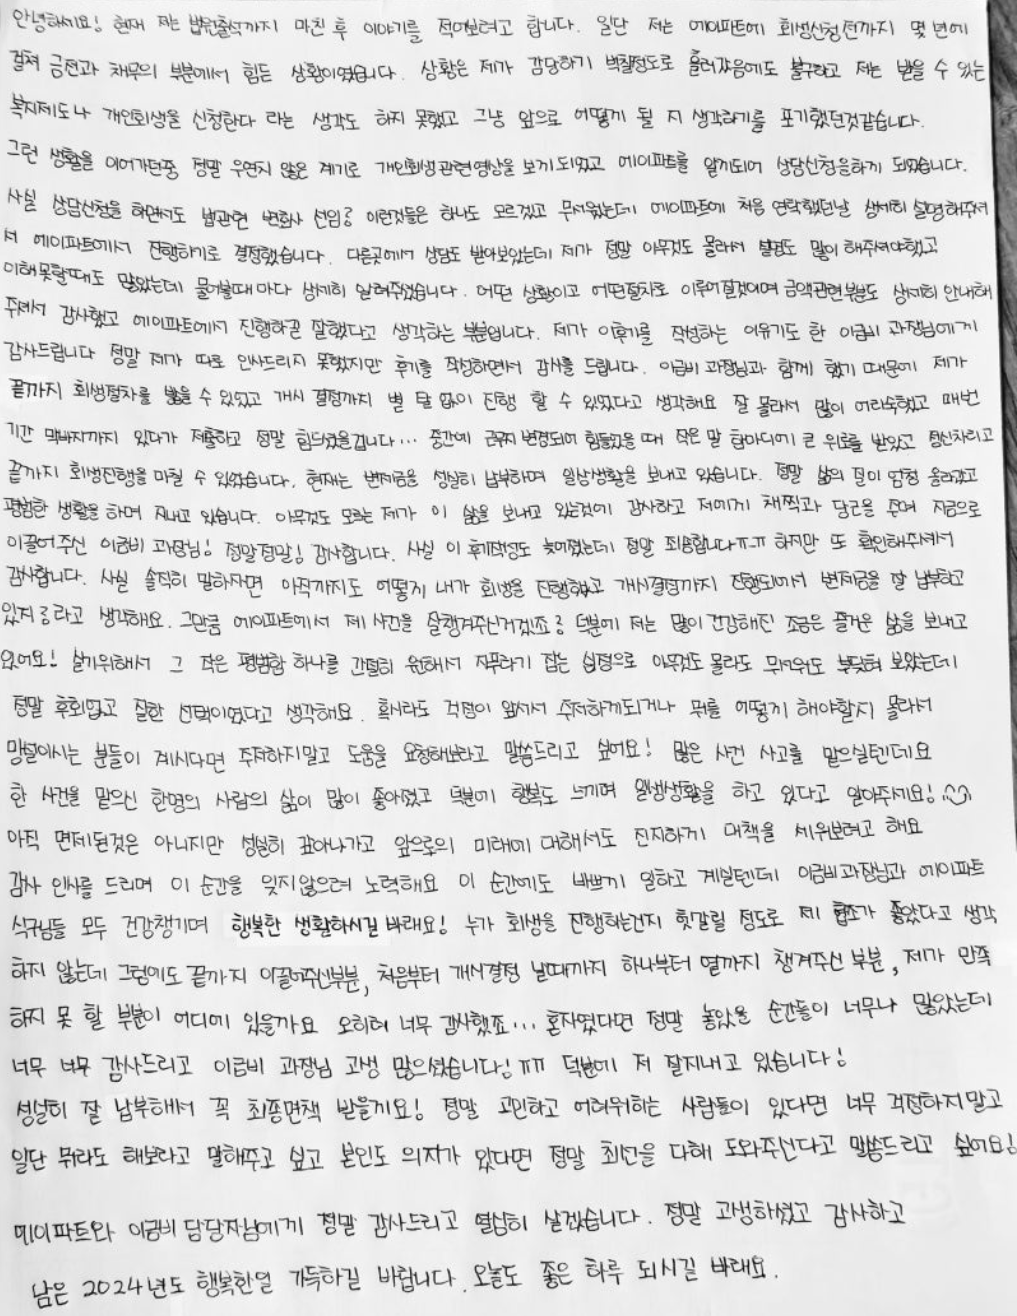 안녕하세요! 현재 저는 법원출석까지 마친 후 이야기를 적어보려고 합니다. 일단 저는 에이파트에 회생신청전까지 몇 년에
걸쳐 금전과 채무의 부분에서 힘든 상황이였습니다. 상황은 제가 감당하기 벅찰정도로 흘러갔음에도 불구하고 저는 받을 수 있는
복지제도나 개인회생을 신청한다 라는 생각도 하지 못했고 그냥 앞으로 어떻게 될 지 생각하기를 포기했던것같습니다.
그런 생활을 이어가던중 정말 우연치 않은 계기로 개인회생관련영상을 보게되었고 에이파트를 알게되어 상담신청을하게 되었습니다.
사실 상담신청을 하면서도 법관련 변호사 선임? 이런것들은 하나도 모르겠고 무서웠는데 에이파트에 처음 연락했던날 상세히 설명해주셔
서 에이파트에서 진행하기로 결정했습니다. 다른곳에서 상담도 받아보았는데 제가 정말 아무것도 몰라서 설명도 많이 해주셔야했고
이해못할때도 많았는데 물어볼때마다 상세히 알려주셨습니다. 어떤 상황이고 어떤절차로 이루어질것이며 금액관련부분도 상세히 안내해
주셔서 감사했고 에이파트에서 진행하길 잘했다고 생각하는 부분입니다. 제가 이후기를 작성하는 이유기도 한 이금비 과장님에게
감사드립니다 정말 제가 따로 인사드리지 못했지만 후기를 작성하면서 감사를 드립니다. 이금비 과장님과 함께 했기 때문에 제가
끝까지 회생절차를 밟을 수 있었고 개시 결정까지 별 탈 없이 진행 할 수 있었다고 생각해요 잘 몰라서 많이 어리숙했고 매번
기간 막바지까지 있다가 제출하고 정말 힘드셨을겁니다... 중간에 금지 변경되어 힘들었을 때 작은 말 한마디에 큰 위로를 받았고 정신차리고
끝까지 회생진행을 마칠 수 있었습니다. 현재는 변제금을 성실히 납부하며 일상생활을 보내고 있습니다. 정말 삶의 질이 엄청 올라갔고
평범한 생활을 하며 지내고 있습니다. 아무것도 모르는 제가 이 삶을 보내고 있는것에 감사하고 저에게 채찍과 당근을 주며 지금으로
이끌어주신 이금비 과장님! 정말정말! 감사합니다. 사실 이 후기작성도 늦어졌는데 정말 죄송합니다ㅠ-ㅠ 하지만 또 확인해주셔서
감사합니다. 사실 솔직히 말하자면 아직까지도 어떻게 내가 회생을 진행했고 개시결정까지 진행되어서 변제금을 잘 납부하고
있지?라고 생각해요. 그만큼 에이파트에서 제 사건을 잘챙겨주신거겠죠? 덕분에 저는 많이 건강해진 조금은 즐거운 삶을 보내고
있어요! 살기위해서 그 작은 평범함 하나를 간절히 원해서 지푸라기 잡는 심정으로 아무것도 몰라도 무서워도 부딪혀 보았는데
정말 후회없고 잘한 선택이였다고 생각해요. 혹시라도 걱정이 앞서서 주저하게되거나 뭐를 어떻게 해야할지 몰라서
망설이시는 분들이 계시다면 주저하지말고 도움을 요청해보라고 말씀드리고 싶어요! 많은 사건 사고를 맡으실텐데요
한 사건을 맡으신 한명의 사람의 삶이 많이 좋아졌고 덕분에 행복도 느끼며 일상생활을 하고 있다고 알아주세요!
아직 면제된것은 아니지만 성실히 갚아나가고 앞으로의 미래에 대해서도 진지하게 대책을 세워보려고 해요
감사 인사를 드리며 이 순간을 잊지않으려 노력해요 이 순간에도 바쁘게 일하고 계실텐데 이금비과장님과 에이파트
식구님들 모두 건강챙기며 행복한 생활하시길 바래요! 누가 회생을 진행하는건지 헷갈릴 정도로 제 협조가 좋았다고 생각
하지 않는데 그럼에도 끝까지 이끌어주신부분, 처음부터 개시결정 날때까지 하나부터 열까지 챙겨주신 부분, 제가 만족
하지 못 할 부분이 어디에 있을까요 오히려 너무 감사했죠... 혼자였다면 정말 놓았을 순간들이 너무나 많았는데
너무 너무 감사드리고 이금비 과장님 고생 많으셨습니다! ㅠㅠ 덕분에 저 잘지내고 있습니다!
성실히 잘 납부해서 꼭 최종면책 받을게요! 정말 고민하고 어려워하는 사람들이 있다면 너무 걱정하지말고
일단 뭐라도 해보라고 말해주고 싶고 본인도 의지가 있다면 정말 최선을 다해 도와주신다고 말씀드리고 싶어요!
에이파트와 이금비 담당자님에게 정말 감사드리고 열심히 살겠습니다. 정말 고생하셨고 감사하고
남은 2024년도 행복한일 가득하길 바랍니다. 오늘도 좋은 하루 되시길 바래요.